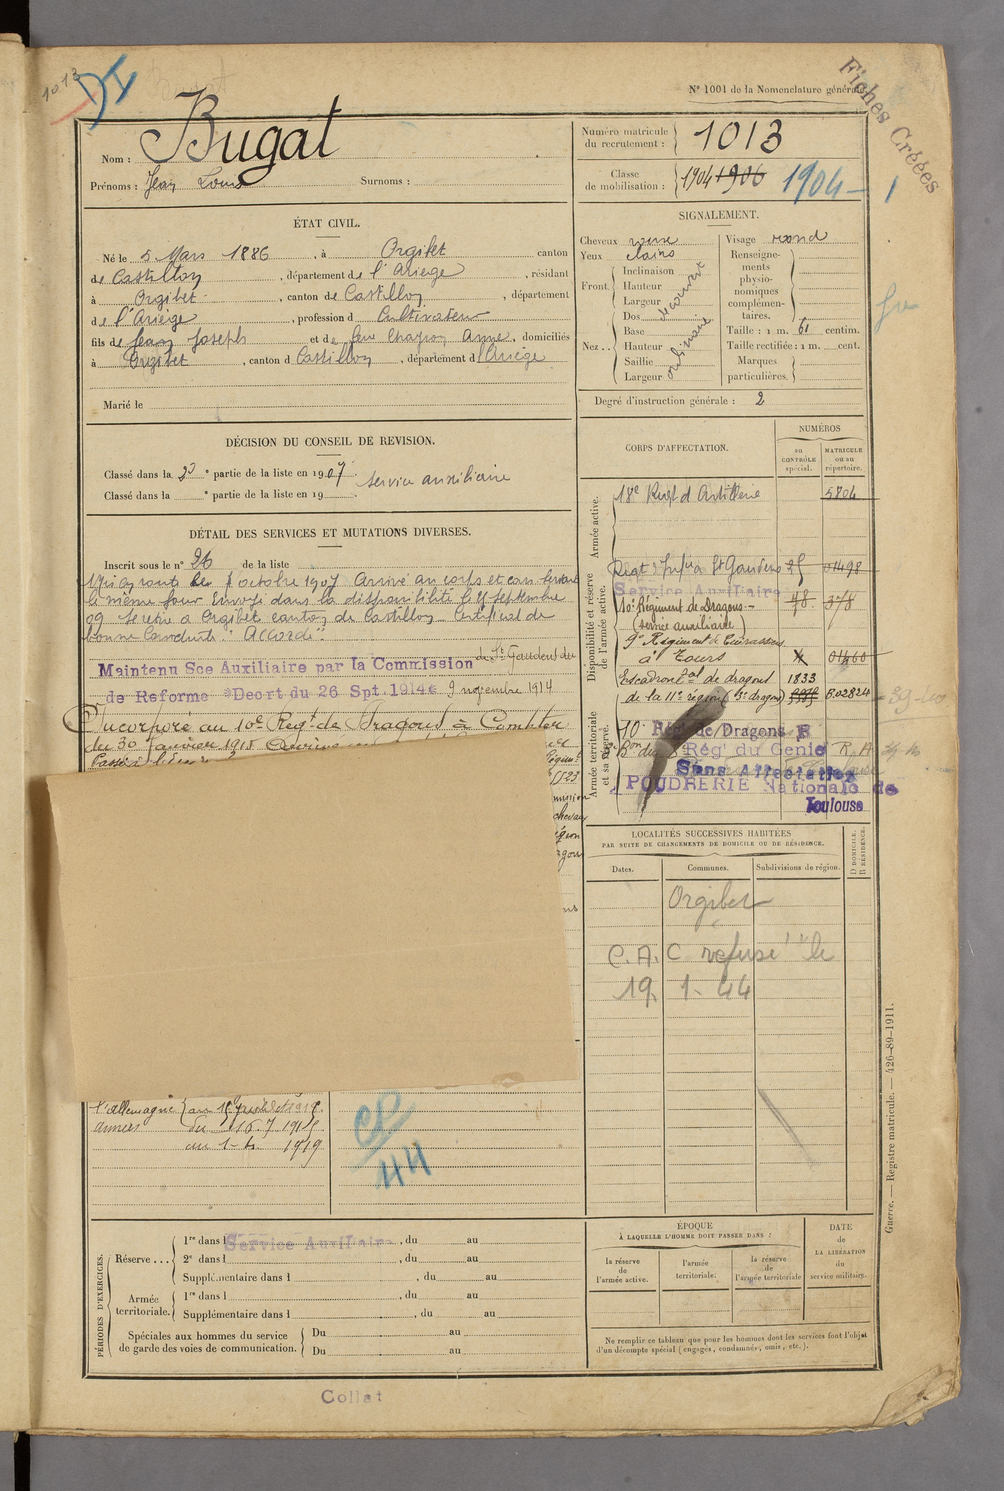 1013
DI
Fiches Créées
N° 1001 de la Nomenclature générale
Nom : Bugat
Prénoms : Jean Louis Surnoms :
Numéro matricule du recrutement : 1013
Classe de mobilisation : 1904 1906 1904 - 1
ÉTAT CIVIL.
Né le 5 Mars 1886, à Orgibet canton
de Castillon, département de l'Ariège, résidant
à Orgibet, canton de Castillon, département
de l'Ariège, profession d Cultivateur
fils de Jean Joseph et de feue Anne, domiciliés
à Orgibet, canton d Castillon, département d l'Ariège
Marié le
SIGNALEMENT.
Cheveux Visage rond
Yeux clairs
Front. Inclinaison
Hauteur
Largeur
découvert
Nez .. Dos
Base
Hauteur
Saillie
Largeur
ordinaire
Renseignements physionomiques complémentaires.
Taille : 1 m. 61 centim.
Taille rectifiée : 1 m. cent.
Marques particulières.
Degré d'instruction générale : 2
DÉCISION DU CONSEIL DE REVISION.
Classé dans la ° partie de la liste en 1907 service auxiliaire
Classé dans la ° partie de la liste en 19
DÉTAIL DES SERVICES ET MUTATIONS DIVERSES.
Inscrit sous le n° 26 de la liste
Mis en route le octobre 1907 Arrivé au corps et
le même jour Envoyé dans la disponibilité le septembre
09 se retire à Orgibet canton de Castillon Certificat de
bonne Conduite "Accordé"
Maintenu Sce Auxiliaire par la Commission de St Gaudens du
de Reforme Décrt du 26 Spt. 1914 9 novembre 1914
Incorporé au 10e Regt de Dragons à
du 30 Janvier 1915
CORPS D'AFFECTATION.
NUMÉROS
au CONTRÔLE spécial.
MATRICULE ou au répertoire.
Armée active.
18e Regt d'Artillerie 5704
Disponibilité et réserve de l'armée active.
Regt d'Infrie St Gaudens 25 01498
Service Auxiliaire
10e Régiment de Dragons 48 378
(service auxiliaire)
9e Régiment de Cuirassiers
à Tours
Escadron de dragons 1833
de la 11e région dragons
Armée territoriale et sa réserve.
10 Rég de Dragons R
Bon du Rég' du Génie R.A
Sans Affectation
POUDRERIE Nationale de
Toulouse
LOCALITÉS SUCCESSIVES HABITÉES
PAR SUITE DE CHANGEMENTS DE DOMICILE OU DE RÉSIDENCE.
Dates. Communes. Subdivisions de région. D DOMICILE. R RÉSIDENCE.
Orgibet
C.A.C refusé le
19. 1- 44
Guerre. — Registre matricule. — 426-89-1911.
l'Allemagne
du 16.7 1915
au 1-4. 1919
CP
44
PÉRIODES D'EXERCICES.
Réserve ... 1re dans l Service Auxiliaire, du au
2e dans l , du au
Supplémentaire dans l , du au
Armée territoriale. 1re dans l , du au
Supplémentaire dans l , du au
Spéciales aux hommes du service de garde des voies de communication. Du au
Du au
ÉPOQUE
À LAQUELLE L'HOMME DOIT PASSER DANS :
la réserve de l'armée active.
l'armée territoriale.
la réserve de l'armée territoriale
DATE de LA LIBÉRATION du service militaire.
Ne remplir ce tableau que pour les hommes dont les services font l'objet
d'un décompte spécial (engagés, condamnés, omis, etc.).
Collat